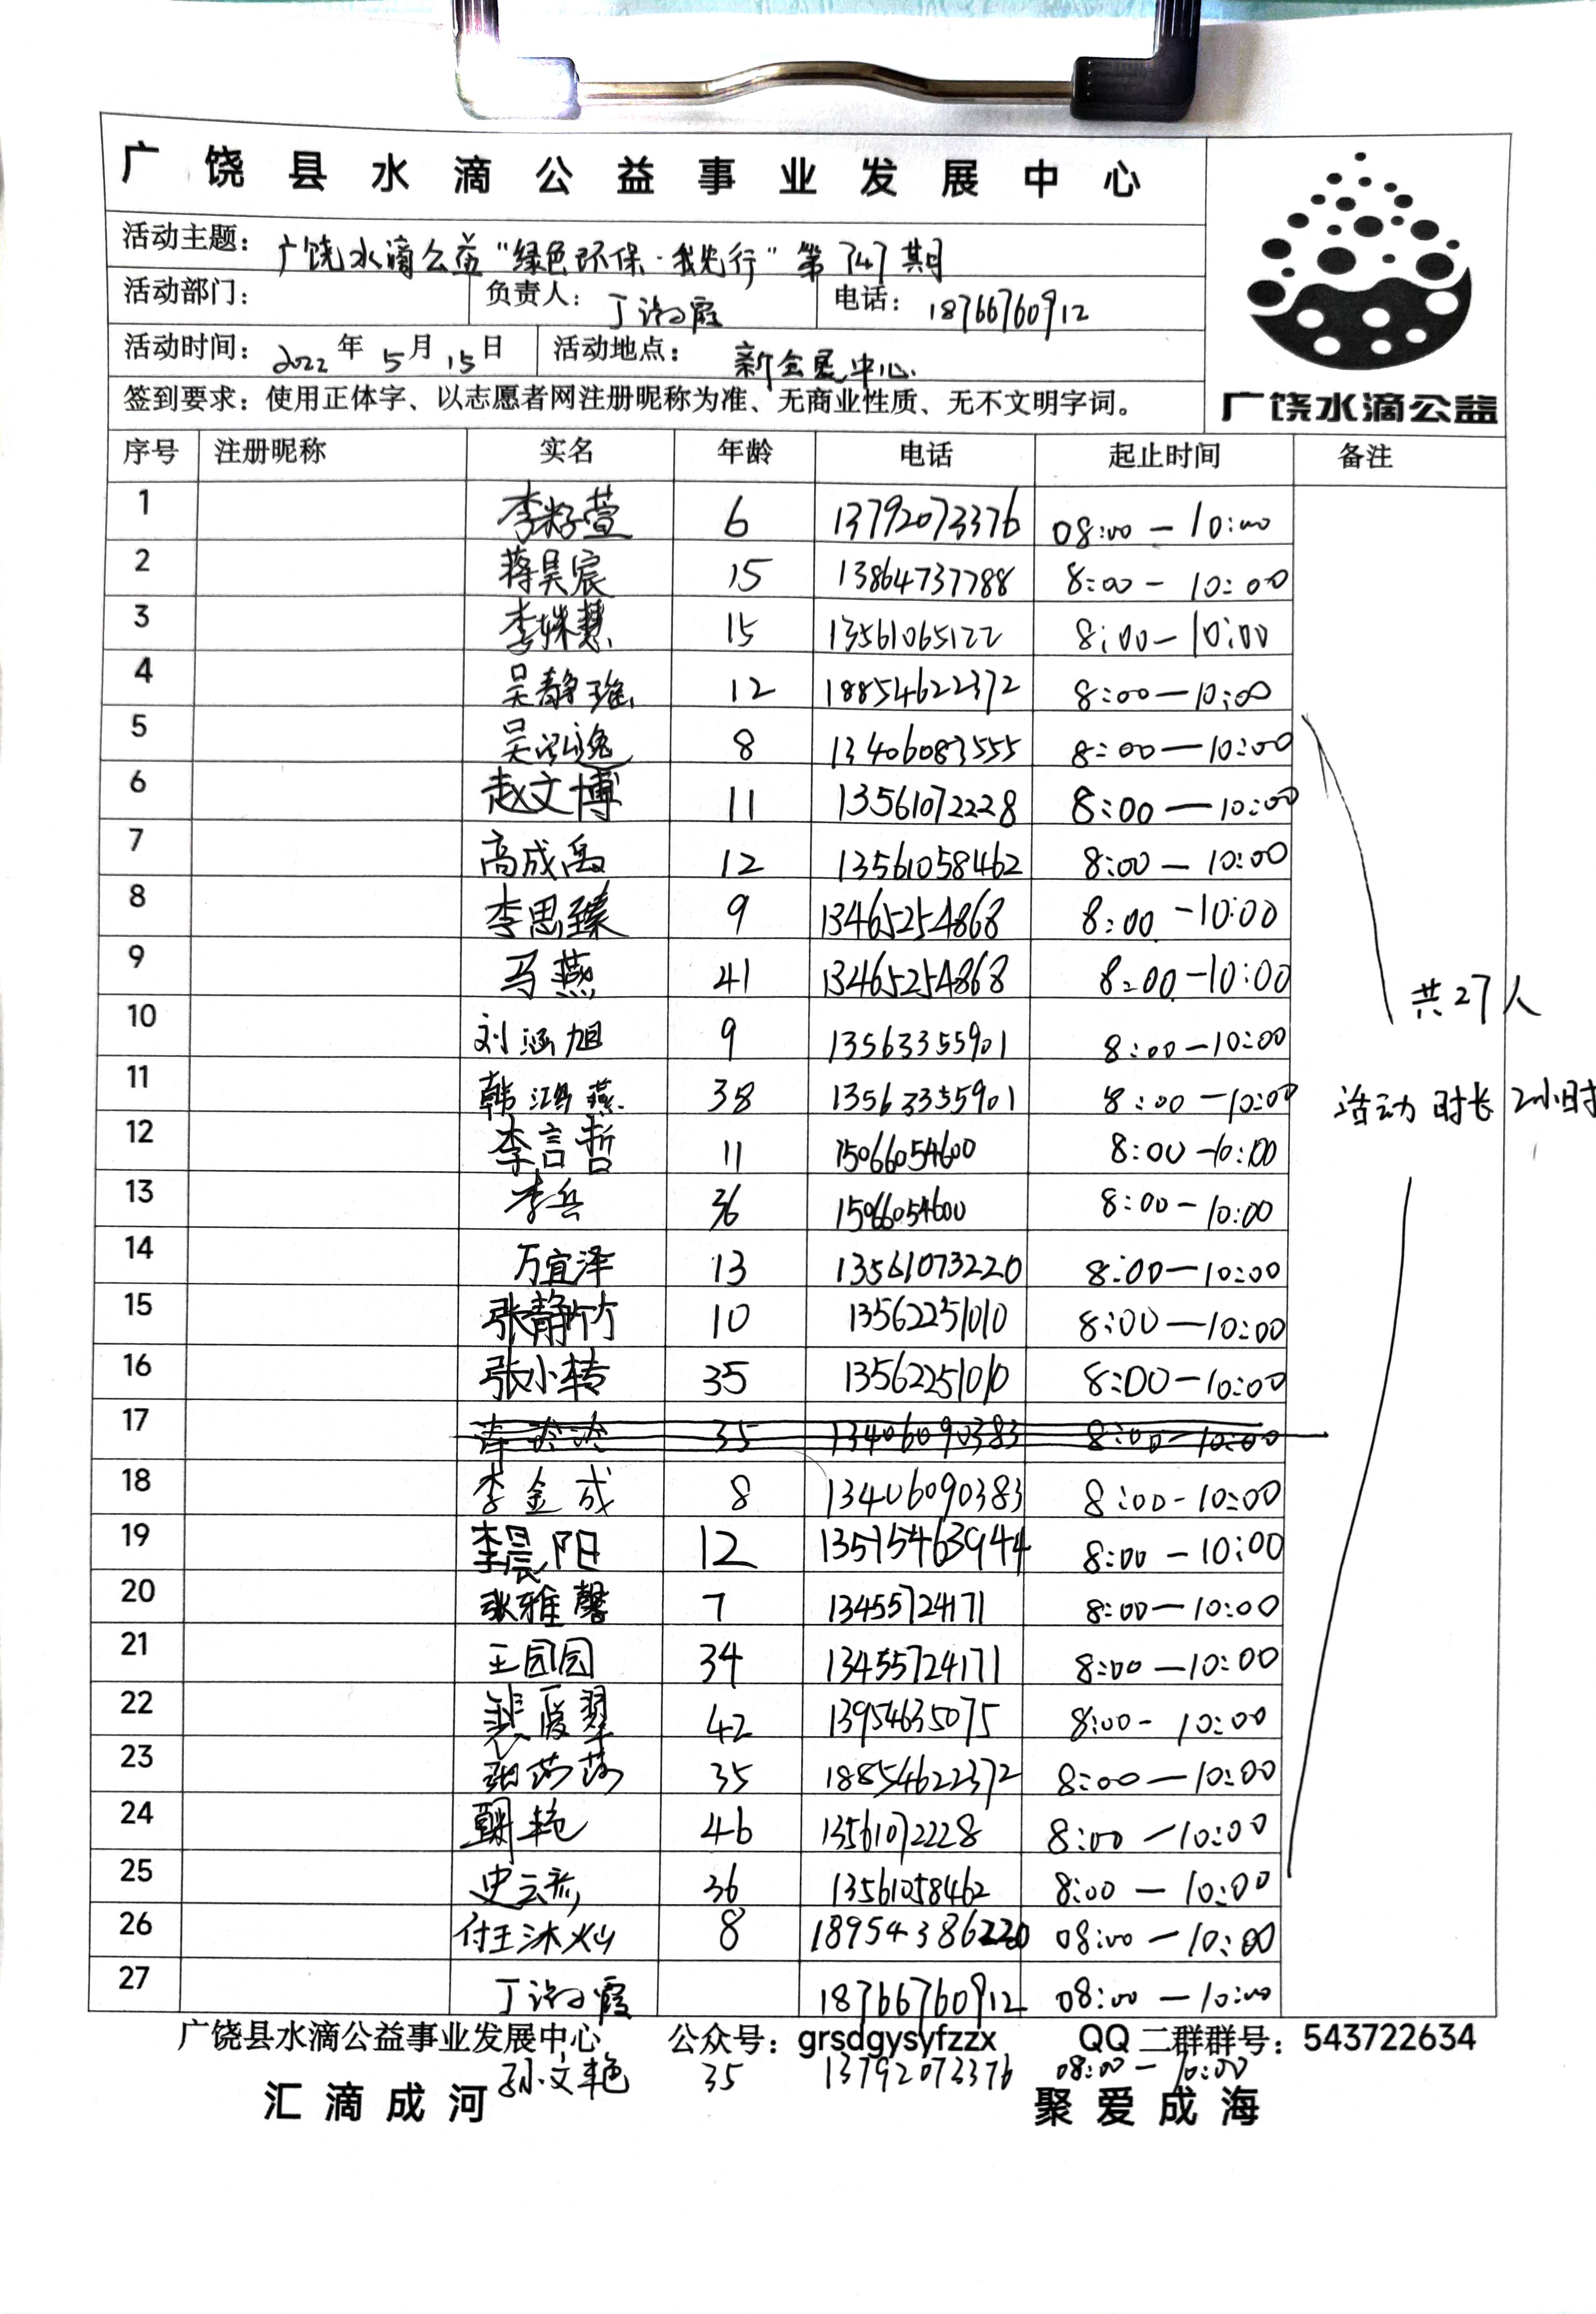 广饶县水滴公益事业发展中心
活动主题： 广饶水滴公益“绿色环保·我先行”第747期
活动部门： 负责人：丁 霞 电话：18766760912
活动时间：2022年5月15日 活动地点：新会展中心.
签到要求：使用正体字、以志愿者网注册昵称为准、无商业性质、无不文明字词。
广饶水滴公益
序号 注册昵称 实名 年龄 电话 起止时间 备注
1 李籽萱 6 13792073376 08:00 — 10:00
2 蒋昊宸 15 13864737788 8:00 — 10:00
3 李姝慧 15 13561065122 8:00 — 10:00
4 吴静瑶 12 18854622372 8:00 — 10:00
5 吴泓逸 8 13406083555 8:00 — 10:00
6 赵文博 11 13561072228 8:00 — 10:00
7 高成禹 12 13561058462 8:00 — 10:00
8 李思臻 9 13465254868 8:00 - 10:00
9 马燕 41 13465254868 8:00 - 10:00
共27人
10 刘涵旭 9 13563355901 8:00 - 10:00
11 韩鸿燕 38 13563355901 8:00 - 10:00
活动时长2小时
12 李言哲 11 15066054600 8:00 - 10:00
13 李兵 36 15066054600 8:00 - 10:00
14 万宜泽 13 13561073220 8:00 — 10:00
15 张静竹 10 13562251010 8:00 — 10:00
16 张小转 35 13562251010 8:00 — 10:00
17 35 13406090383 8:00 - 10:00
18 李金成 8 13406090383 8:00 - 10:00
19 李晨阳 12 13515463944 8:00 - 10:00
20 张雅馨 7 13455724171 8:00 — 10:00
21 王园园 34 13455724171 8:00 — 10:00
22 裴爱翠 42 13954635075 8:00 - 10:00
23 35 18854622372 8:00 — 10:00
24 艳 46 13561072228 8:00 — 10:00
25 史云 36 13561058462 8:00 — 10:00
26 付王沐灿 8 18954386220 08:00 — 10:00
27 丁 霞 18766760912 08:00 — 10:00
广饶县水滴公益事业发展中心 公众号：grsdgysyfzzx QQ二群群号：543722634
孙文艳 35 13792073376 08:00 — 10:00
汇滴成河 聚爱成海